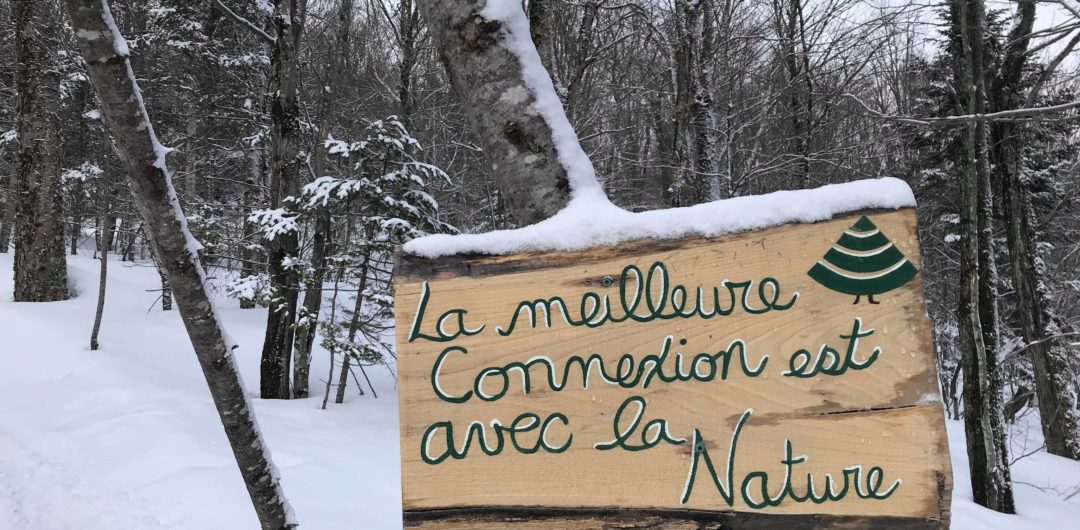 La meilleure
Connexion est
avec la
Nature